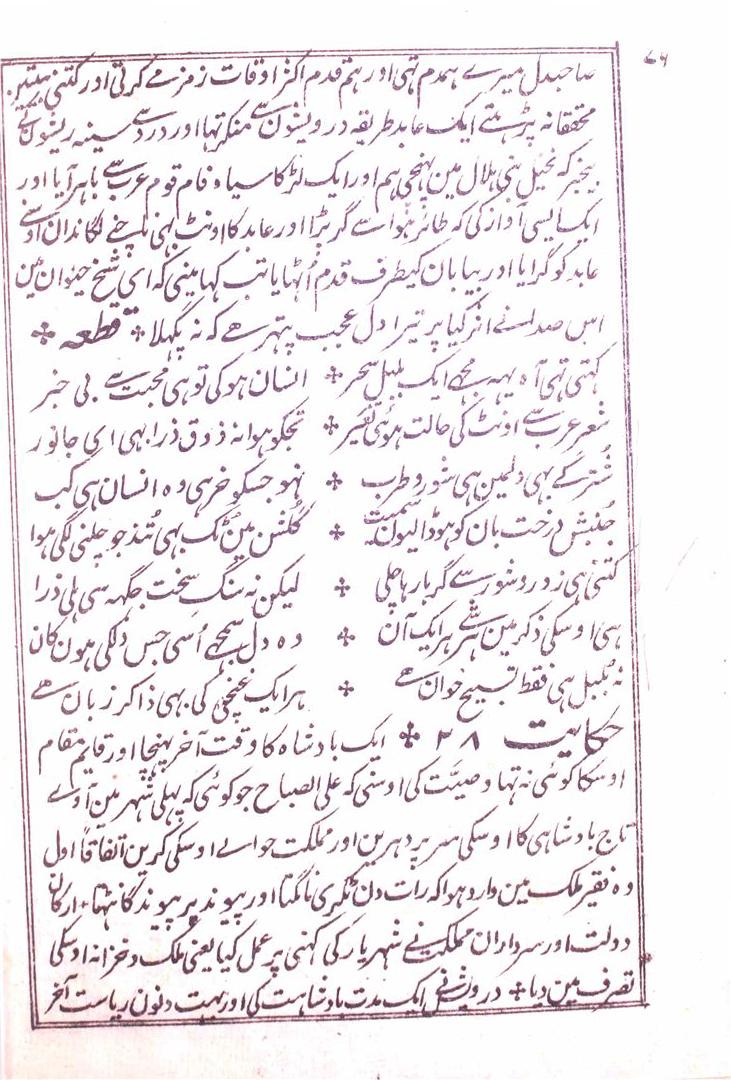 ۷۶
صاحبدل میرے ہمدم تہی اور ہم قدم اکثر اوقات زمزمے کرتی اور کتنی بیتیں
محققانہ پڑہتے ایک عابد طریقہ درویشون سے منکر تہا اور درد سے سینہ ریشون کے
بیخبر کہ نخیل بنی ہلال مین پہنچی ہم اور ایک لڑکا سیاہ فام قوم عرب سے باہر آیا اور
ایک ایسی آواز کی کہ طائر ہوا سے گر پڑا اور عابد کا اونٹ بہی ناچنے لگا ندان اوسنے
عابد کو گرایا اور بیابان کیطرف قدم اُٹہایا تب کہا مینی کہ ای شیخ حیوان مین
اس صدا نے اثر کیا پر تیرا دل عجب پتہر ہے کہ نہ پگہلا ٭ قطعہ ٭
کہتی تہی آہ یہہ مجہے ایک بلبل سحر ٭ انسان ہو کی تو ہی محبت سے بی خبر
شعر عرب سے اونٹ کی حالت ہوئی تغیر ٭ تجکو ہوا نہ ذوق ذرا بہی ای جانور
شُتر کے بہی دلمین ہی شور و طرب ٭ نہو جسکو خر ہی وہ انسان ہی کب
جنبش درخت بان کو ہو ڈالیون سمیت ٭ گلشن مین ٹک بہی تُند جو چلنی لگی ہوا
کتنی ہی زور و شور سے گر بار ہا چلی ٭ لیکن نہ سنگ سخت جگہہ سی ہلی ذرا
ہی اوسکی ذکر مین ہر شے ہر ایک آن ٭ وہ دل سمجہے اُسی جس دلکی ہون کان
نہ بلبل ہی فقط تسبیح خوان ہے ٭ ہر ایک غنچی کی بہی ذاکر زبان ہے
حکایت ۲۸ ٭ ایک بادشاہ کا وقت آخر پہنچا اور قایم مقام
اوسکا کوئی نہ تہا وصیّت کی اوسنی کہ علی الصباح جو کوئی کہ پہلی شہر مین آوے
تاج بادشاہی کا اوسکی سر پر دہرین اور مملکت حوالے اوسکی کرین اتفاقاً اول
وہ فقیر ملک مین وارد ہوا کہ رات دن ٹکری مانگتا اور پیوند پر پیوند گانٹہتا ٭ ارکان
دولت اور سرداران مملکت نے شہریار کی کہنی پر عمل کیا یعنی ملک و خزانہ اوسکی
تصرف مین دیا ٭ درویش نے ایک مدت بادشاہت کی اور بہت دنون ریاست آخر